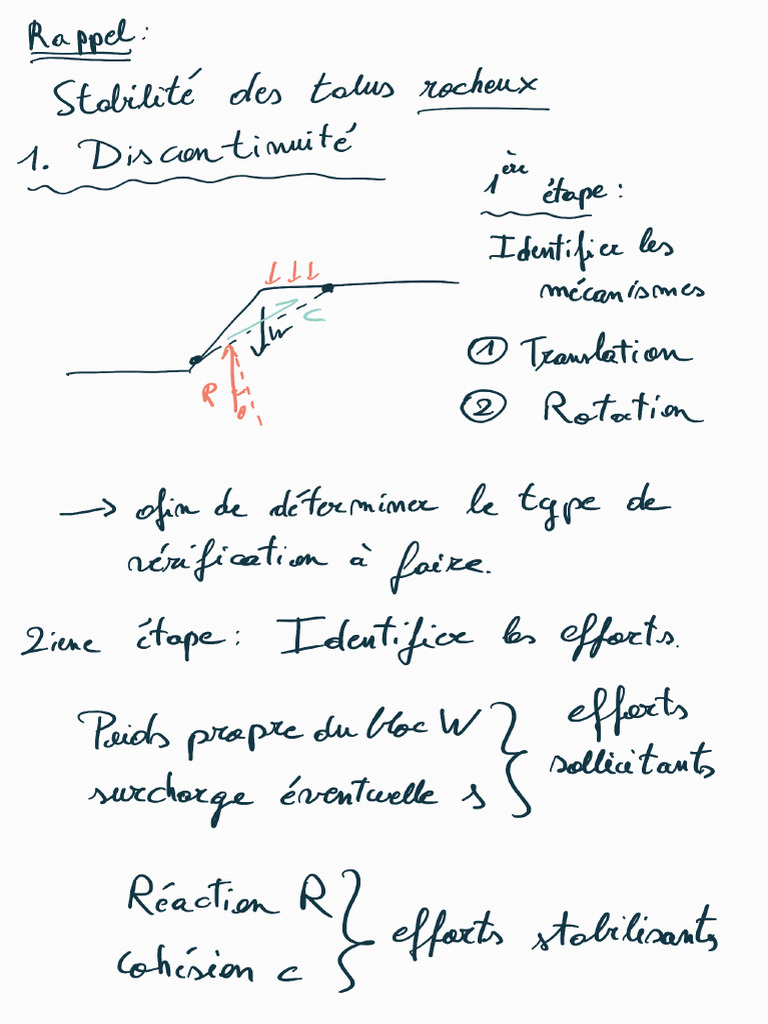 Rappel:
Stabilité des talus rocheux
1. Discontinuité
1ère étape:
Identifier les
mécanismes
① Translation
② Rotation
W
C
R
→ afin de déterminer le type de
vérification à faire.
2ieme étape: Identifier les efforts.
Poids propre du bloc W
surcharge éventuelle s
efforts
sollicitants
Réaction R
cohésion c
efforts stabilisants